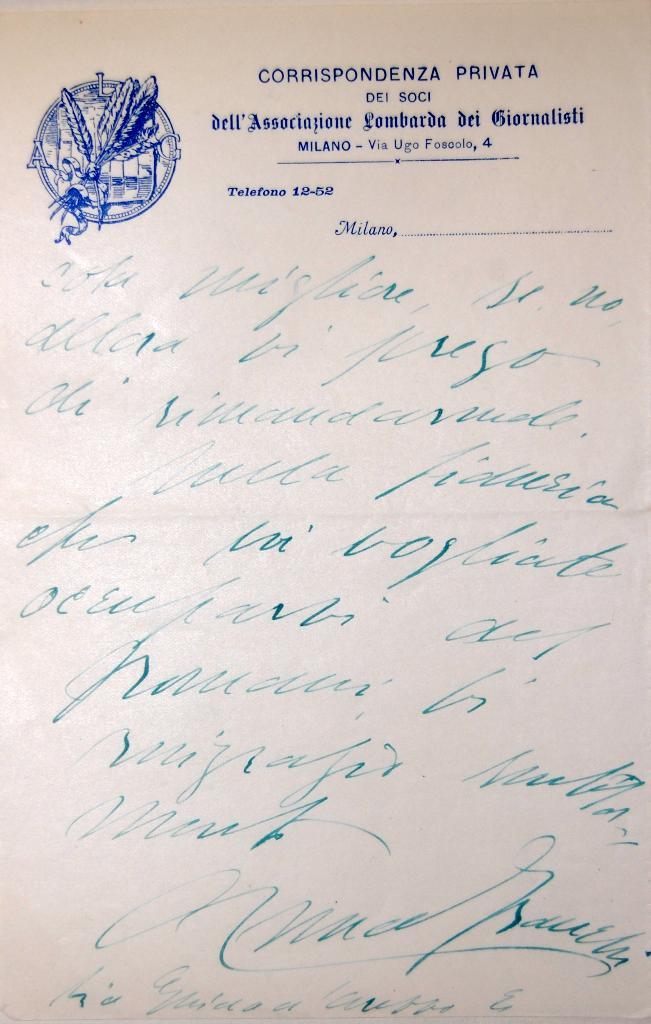 A L G
CORRISPONDENZA PRIVATA
DEI SOCI
dell'Associazione Lombarda dei Giornalisti
MILANO – Via Ugo Foscolo, 4
Telefono 12-52
Milano,
migliore, se no,
allora vi prego
di rimandarmele.
Nella fiducia
che vi vogliate
occuparvi del
vi
ringrazio
Via Guido d'Arezzo